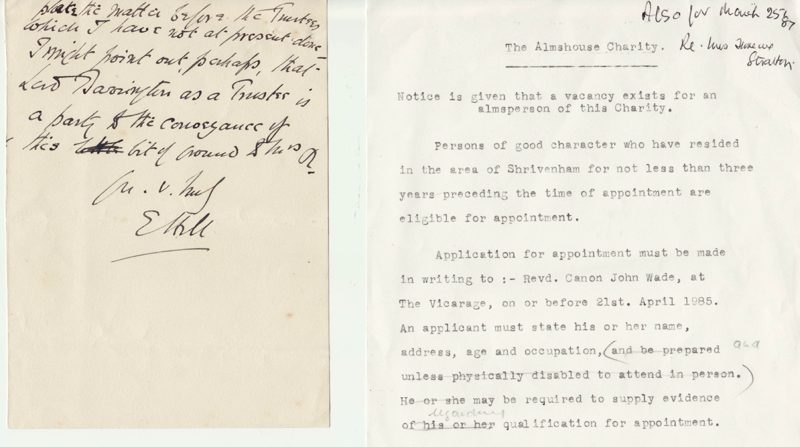 state the matter before the Trustees
which I have not at present done
I might point out, perhaps, that
Lord Barrington as a Trustee is
a party to the conveyance of
this bit of ground to Mrs R
E Hill
Also for March 25th 87
Re. Mrs
Stratton.
The Almshouse Charity.
Notice is given that a vacancy exists for an
almsperson of this Charity.
Persons of good character who have resided
in the area of Shrivenham for not less than three
years preceding the time of appointment are
eligible for appointment.
Application for appointment must be made
in writing to :- Revd. Canon John Wade, at
The Vicarage, on or before 21st. April 1985.
An applicant must state his or her name,
address, age and occupation, (and be prepared
unless physically disabled to attend in person.)
He or she may be required to supply evidence
regarding
of his or her qualification for appointment.